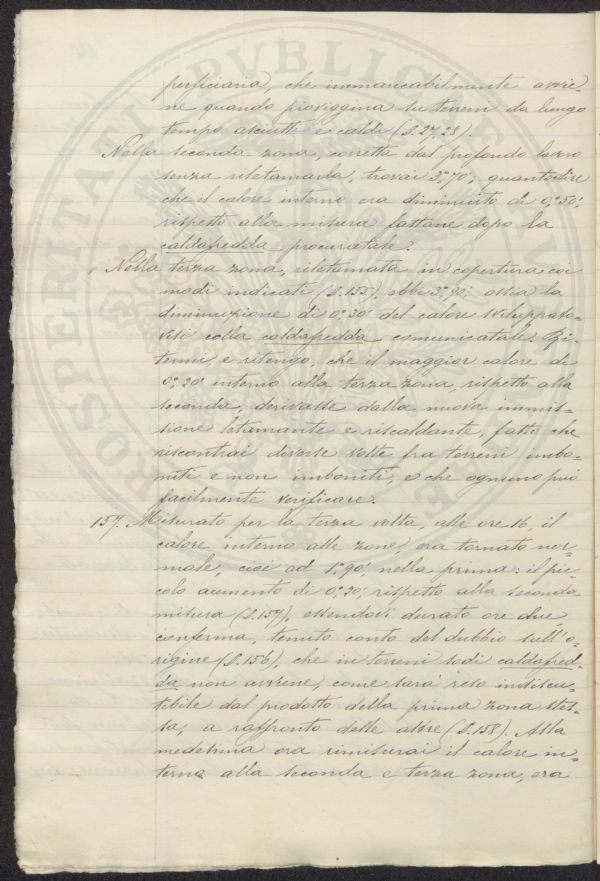 perficiaria, che immancabilmente avvie-
ne quando pioviggina su terreni da lungo
tempo asciutti e caldi (§. 27, 28).
Nella seconda zona, corretta dal profondo lavoro
senza riletamarla, trovai 3.°70'; quantodire
che il calore interno era diminuito di 0.°50',
rispetto alla misura fattane dopo la
caldafredda procuratale.
Nella terza zona, riletamata in copertura coi
modi indicati (§. 155), ebbi 3.°90'; ossia la
diminuzione di 0.°30' del calore sviluppato-
vesi colla caldafredda comunicatale. Ri-
tenni, e ritengo, che il maggior calore di
0.°20' interno alla terza zona, rispetto alla
seconda, derivasse dalla nuova immis-
sione letamante e riscaldante, fatto che
riscontrai diverse volte fra terreni imbo-
niti e non imboniti, e che ognuno può
facilmente verificare.
157. Misurato per la terza volta, alle ore 16, il
calore interno alle zone, era tornato nor-
male, cioè ad 1.°90', nella prima: il pic-
colo aumento di 0.°20', rispetto alla seconda
misura (§. 154), essendovi durato ore due,
conferma, tenuto conto del dubbio sull'o-
rigine (§. 156), che in terreni sodi caldafred-
da non avviene, come sarà reso indiscu-
tibile dal prodotto della prima zona stes-
sa, a raffronto delle altre (§. 158). Alla
medesima ora rimisurai il calore in-
terno alla seconda e terza zona, era
PROSPERITATI PVBLICAE